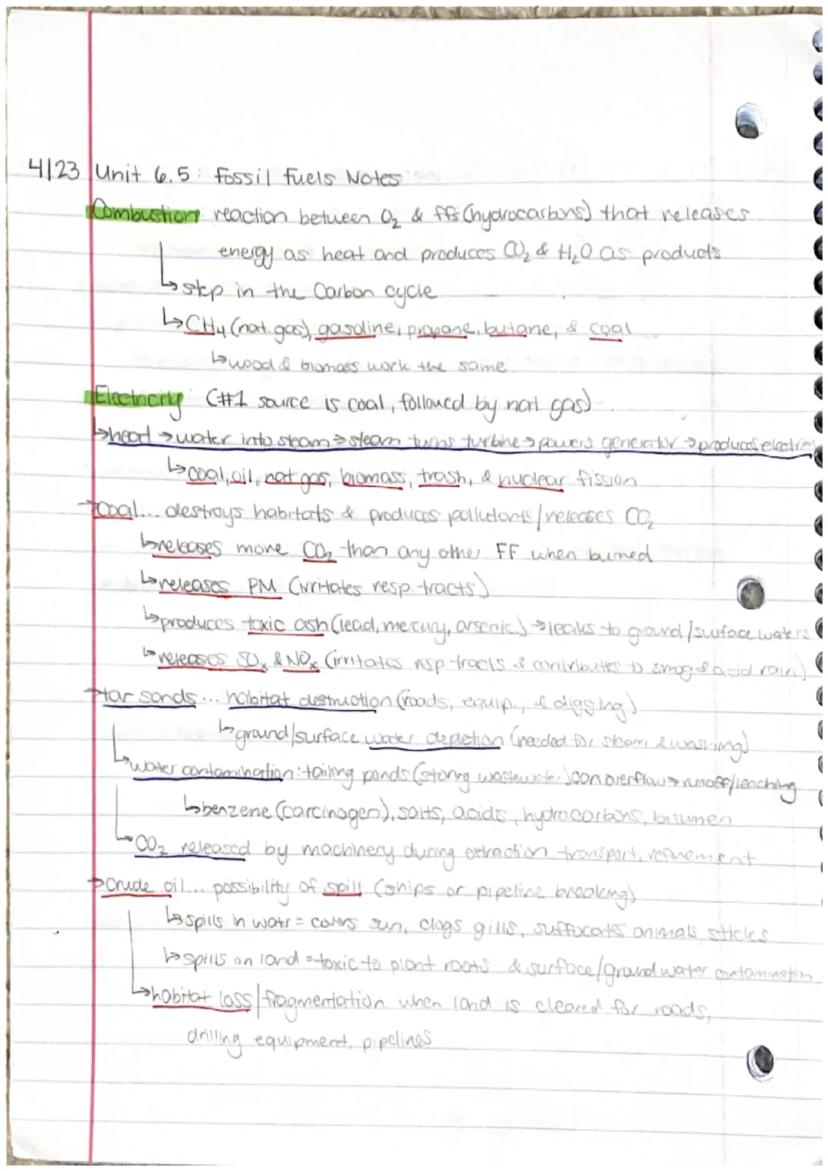 4/23 Unit 6.5: Fossil Fuels Notes
Combustion reaction between O₂ & FFs (hydrocarbons) that releases
energy as heat and produces CO₂ & H₂O as products
↳ step in the Carbon cycle
↳ CH₄ (nat. gas), gasoline, propane, butane, & coal
↳ wood & biomass work the same
Electricity (#1 source is coal, followed by nat gas)
↳ heat → water into steam → steam turns turbine → powers generator → produces
↳ coal, oil, nat gas, biomass, trash, & nuclear fission
→ Coal... destroys habitats & produces pollutants/releases CO₂
↳ releases more CO₂ than any other FF when burned
↳ releases PM (irritates resp. tracts)
↳ produces toxic ash (lead, mercury, arsenic) → leaks to ground/surface waters
↳ releases SOₓ & NOₓ (irritates resp tracts & contributes to smog & acid rain)
→ tar sands... habitat destruction (roads, equip., & digging)
↳ ground/surface water depletion (needed for steam & washing)
↳ water contamination: tailing ponds (storing wastewater) can overflow → runoff/leaching
↳ benzene (carcinogen), salts, acids, hydrocarbons, bitumen
↳ CO₂ released by machinery during extraction, transport, refinement
→ Crude oil... possibility of spill (ships or pipeline breaking)
↳ spills in water = covers sun, clogs gills, suffocates animals, sticks
↳ spills on land = toxic to plant roots & surface/ground water contamination
↳ habitat loss/fragmentation when land is cleared for roads,
drilling equipment, pipelines